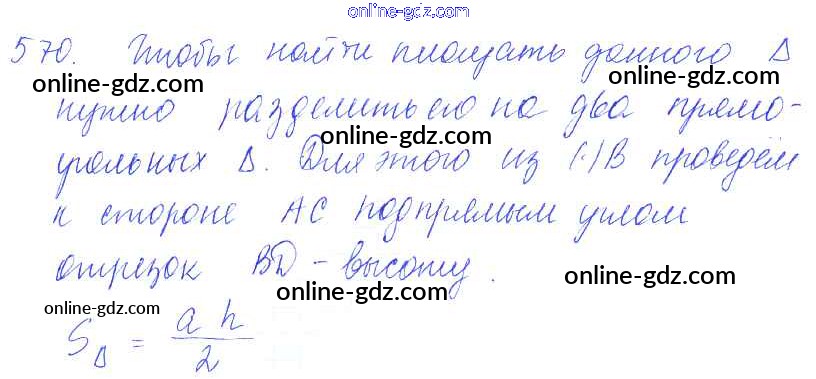 online-gdz.com
570. Чтобы найти площадь данного Δ
online-gdz.com online-gdz.com
нужно разделить его на два прямо-
online-gdz.com
угольных Δ. Для этого из (·) B проведём
к стороне AC под прямым углом
отрезок BD - высоту.
online-gdz.com
online-gdz.com online-gdz.com
S_Δ = a h / 2